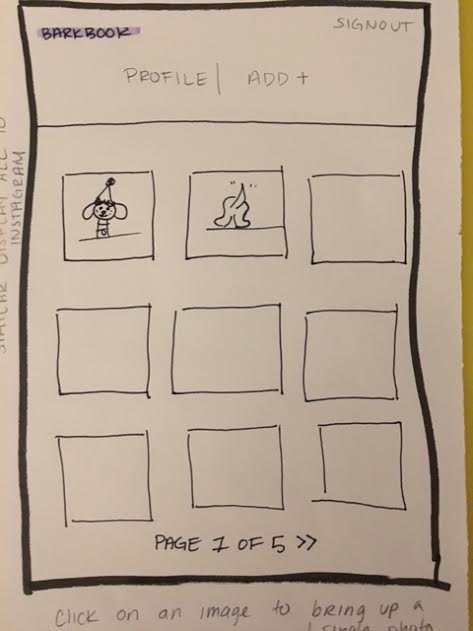 BARKBOOK
SIGNOUT
PROFILE | ADD +
PAGE 1 OF 5 >>
SIMILAR DISPLAY ALL TO
INSTAGRAM
Click on an image to bring up a
single photo